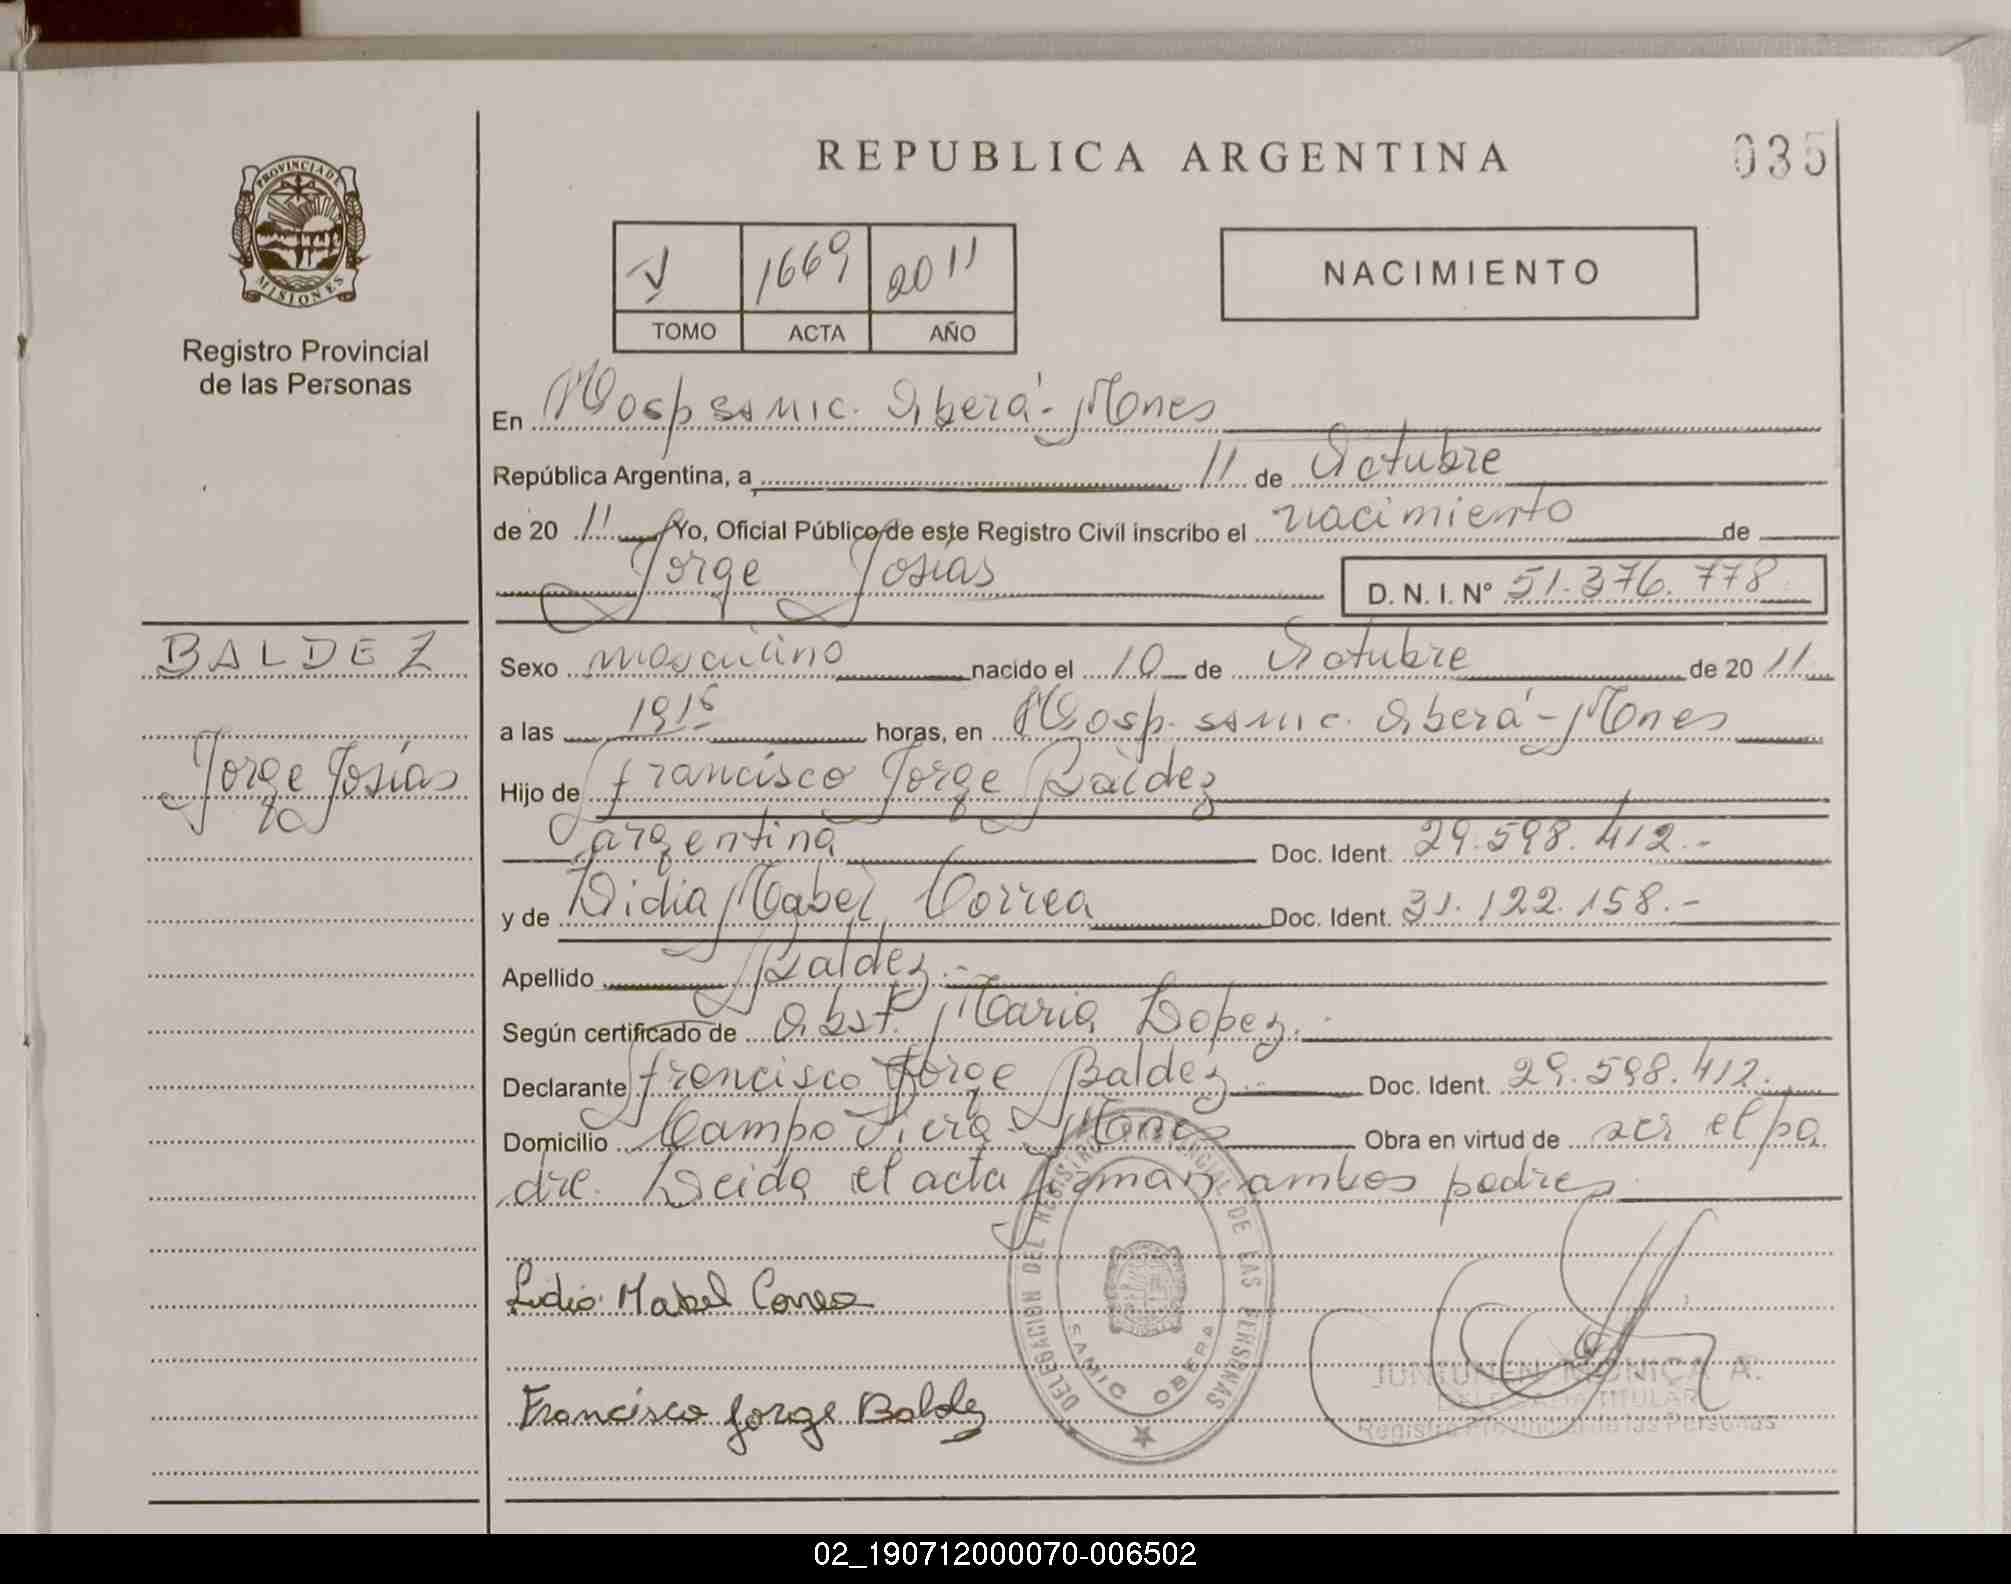 REPUBLICA ARGENTINA
035
PROVINCIA DE
MISIONES
Registro Provincial
de las Personas
V 1669 2011
TOMO ACTA AÑO
NACIMIENTO
En Hosp samic. Oberá - Mones
República Argentina, a 11 de Octubre
de 20 11 Yo, Oficial Público de este Registro Civil inscribo el nacimiento de
Jorge Josías
D. N. I. Nº 51.376.778
BALDEZ
Jorge Josías
Sexo masculino nacido el 10 de Octubre de 20 11
a las 1915 horas, en Hosp. samic. Oberá - Mones
Hijo de Francisco Jorge Baldez
argentina Doc. Ident. 29.598.412.-
y de Lidia Mabel Correa Doc. Ident. 31.122.158.-
Apellido Baldez.-
Según certificado de Obst. Maria Lopez.-
Declarante Francisco Jorge Baldez Doc. Ident. 29.598.412.
Domicilio Campo Viera - Mones Obra en virtud de ser el pa
dre. Leida el acta firman ambos padres
Lidia Mabel Correa
Francisco Jorge Baldez
DELEGACION DEL REGISTRO PROVINCIAL DE LAS PERSONAS
SAMIC OBERA
JUNTUNEN MONICA A.
DELEGADA TITULAR
Registro Provincial de las Personas
02_190712000070-006502